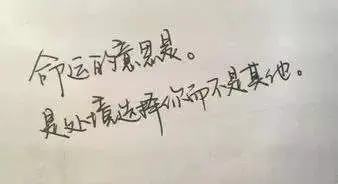 命运的意思是。
是处境选择你而不是其他。